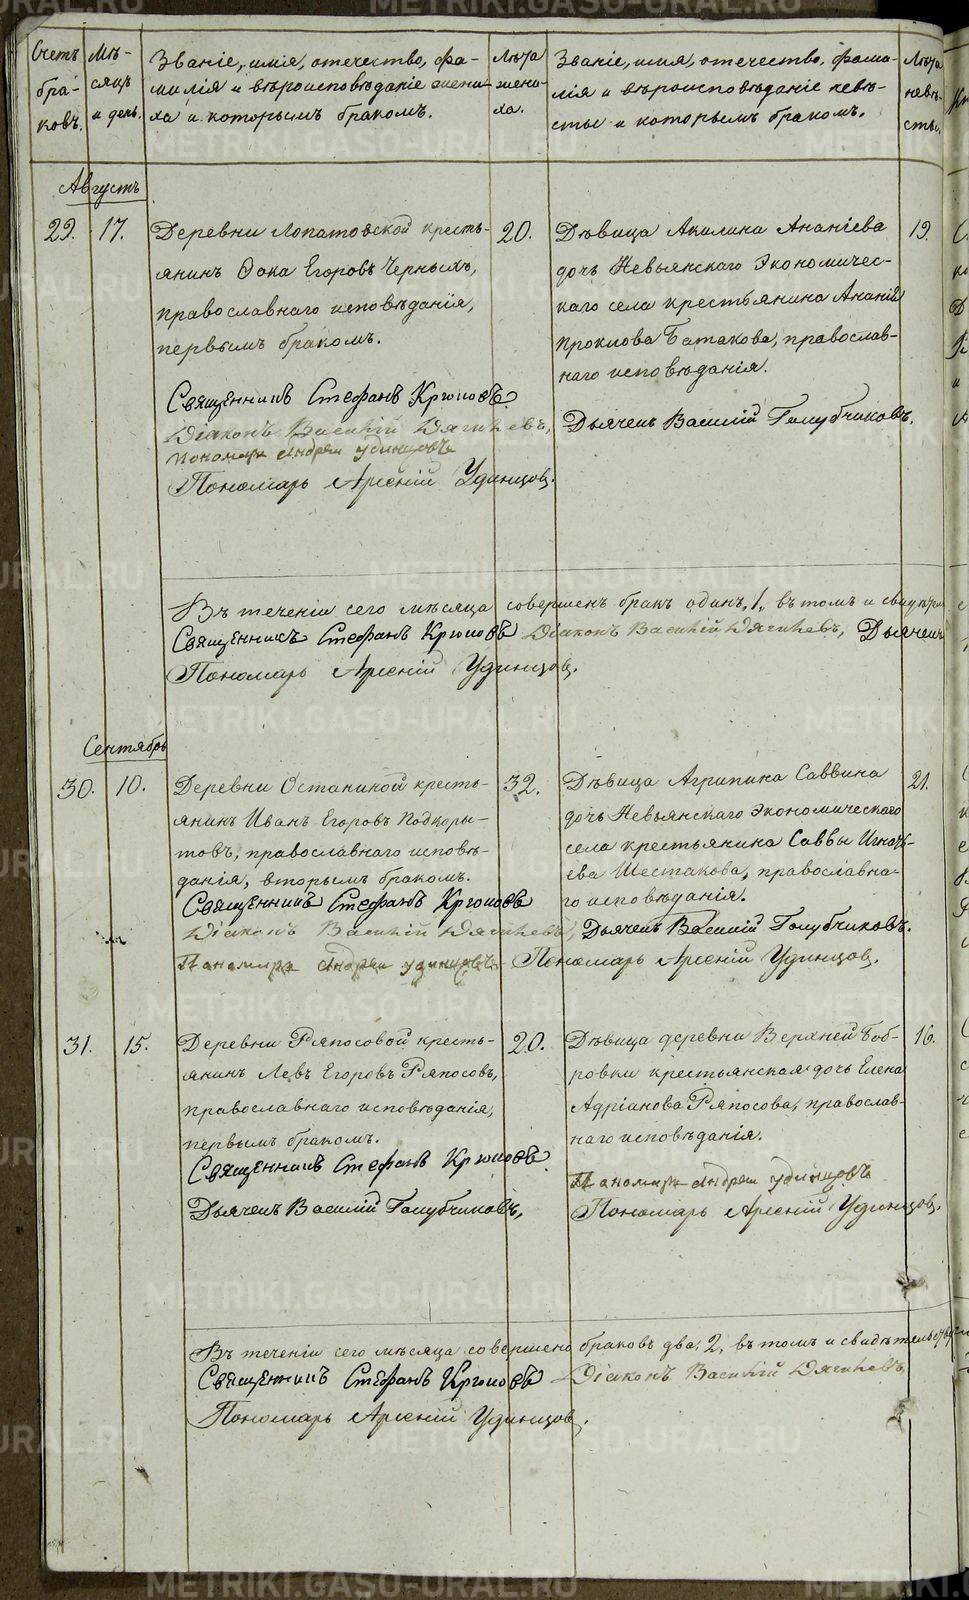 Счетъ браковъ.
Мѣсяцъ и день.
Званіе, имя, отечество, фамилія и вѣроисповѣданіе жениха и которымъ бракомъ.
Лѣта жениха.
Званіе, имя, отечество, фамилія и вѣроисповѣданіе невѣсты и которымъ бракомъ.
Лѣта невѣсты.
Августъ
29. 17.
Деревни Лопатовской кресть-
янинъ Фока Егоровъ Черныхъ,
православнаго исповѣданія,
первымъ бракомъ.
20.
Дѣвица Акилина Ананіева
дочь Невьянскаго Экономичес-
каго села крестьянина Ананія
Прокпова Батакова, православ-
наго исповѣданія.
19.
Священникъ Стефанъ Крюковъ.
Діаконъ Василій Дягилевъ,
Пономарь Андрей Удинцовъ
Пономарь Арсеній Удинцов.
Дьячекъ Василій Голубчиковъ.
Въ теченіи сего мѣсяца совершенъ бракъ одинъ, 1, въ томъ и
Священникъ Стефанъ Крюковъ Діаконъ Василій Дягилевъ, Дьячекъ
Пономарь Арсеній Удинцов.
Сентябрь
30. 10.
Деревни Останиной кресть-
янинъ Иванъ Егоровъ Подкоры-
товъ, православнаго исповѣ-
данія, вторымъ бракомъ.
32.
Дѣвица Агрипина Саввина
дочь Невьянскаго Экономическаго
села крестьянина Саввы Игнать-
ева Шестакова, православна-
го исповѣданія.
21.
Священникъ Стефанъ Крюковъ
Діаконъ Василій Дягилевъ, Дьячекъ Василій Голубчиковъ.
Панамарь Андрей Удинцовъ Пономарь Арсеній Удинцов.
31. 15.
Деревни Ряпосовой кресть-
янинъ Левъ Егоровъ Ряпосовъ,
православнаго исповѣданія,
первымъ бракомъ.
20.
Дѣвица деревни Верхней Боб-
ровки крестьянская дочь Елена
Адріанова Ряпосова, православ-
наго исповѣданія.
16.
Священникъ Стефанъ Крюковъ
Дьячекъ Василій Голубчиковъ,
Панамарь Андрей Удинцовъ
Пономарь Арсеній Удинцов.
Въ теченіи сего мѣсяца совершено браковъ два, 2, въ томъ и
Священникъ Стефанъ Крюковъ Діаконъ Василій Дягилевъ,
Пономарь Арсеній Удинцов.
METRIKI.GASO-URAL.RU